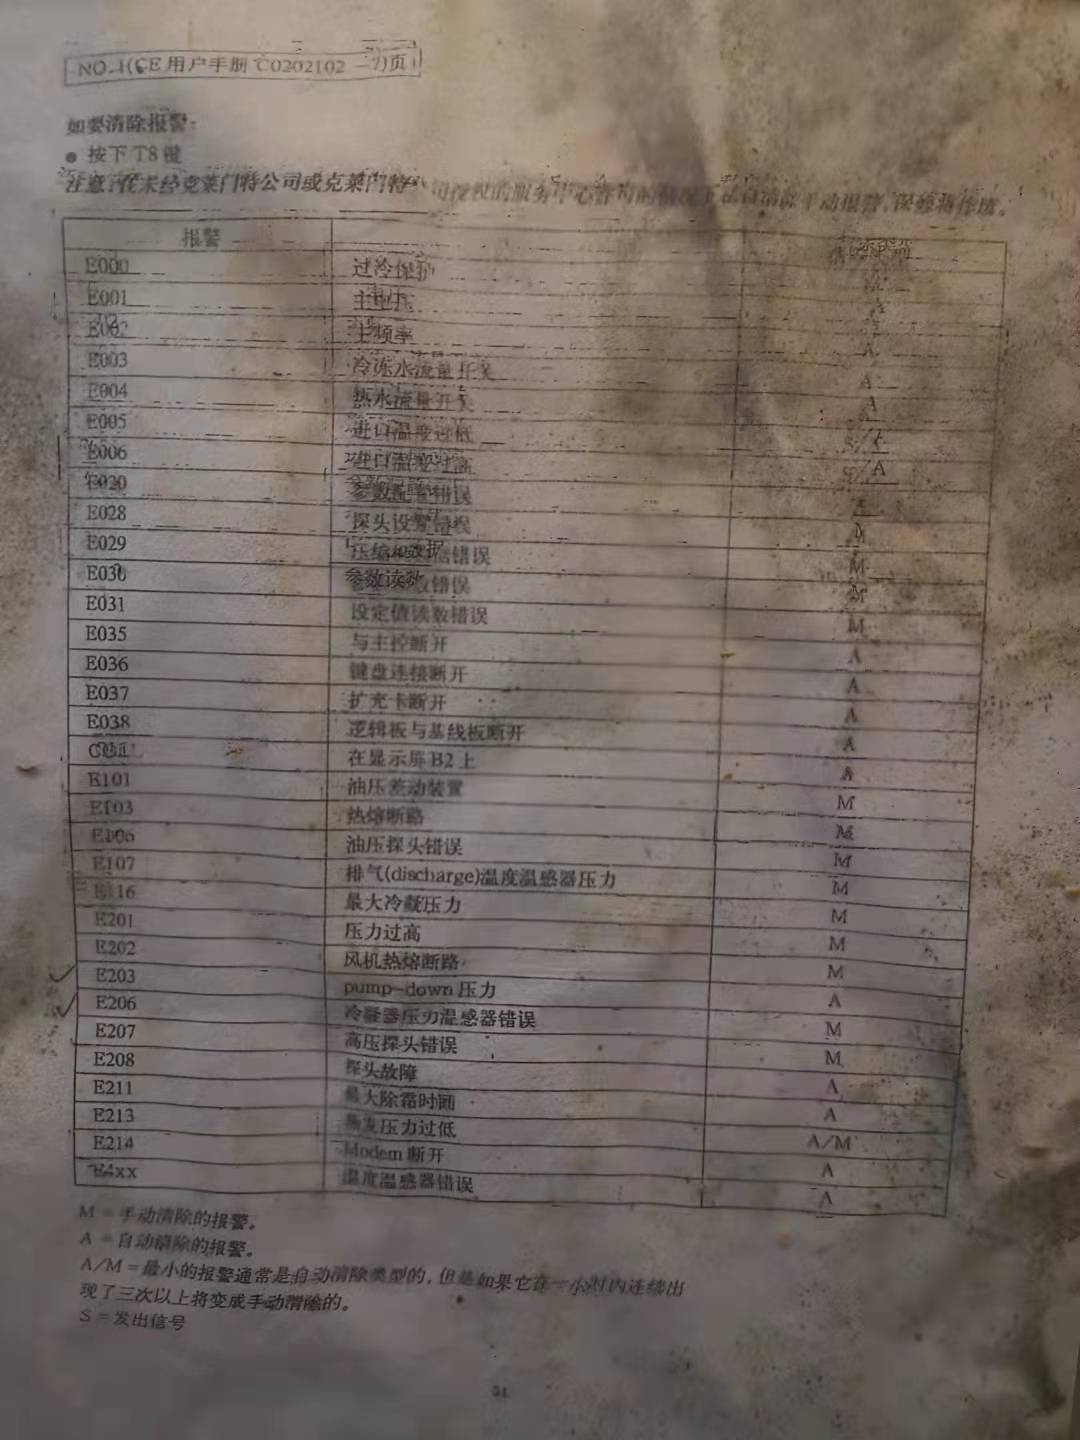 用户手册 C0202102
如要清除报警:
● 按下 T8 键
注意:在未经克莱门特公司或克莱门特公司授权的服务中心许可的情况下
报警
E000 过冷保护
E001 主电压
E002 主频率 A
E003 冷冻水流量开关 A
E004 热水流量开关 A
E005 进口温度过低
E006 进口温度过高
E020 参数配置错误
E028 探头设置错误 M
E029 错误 M
E030 参数读数错误 M
E031 设定值读数错误 M
E035 与主控断开 A
E036 键盘连接断开 A
E037 扩充卡断开 A
E038 逻辑板与基线板断开 A
在显示屏 B2 上 A
E101 油压差动装置 M
E103 热熔断路 M
E106 油压探头错误 M
E107 排气(discharge)温度温感器压力 M
E116 最大冷凝压力 M
E201 压力过高 M
E202 风机热熔断路 M
E203 pump-down 压力 A
E206 冷凝器压力温感器错误 M
E207 高压探头错误 M
E208 探头故障 A
E211 最大除霜时间 A
E213 蒸发压力过低 A/M
E214 Modem 断开 A
E4xx 温度温感器错误 A
M = 手动清除的报警。
A = 自动清除的报警。
A/M = 最小的报警通常是自动清除类型的,但是如果它在一小时内连续出
现了三次以上将变成手动清除的。
S = 发出信号